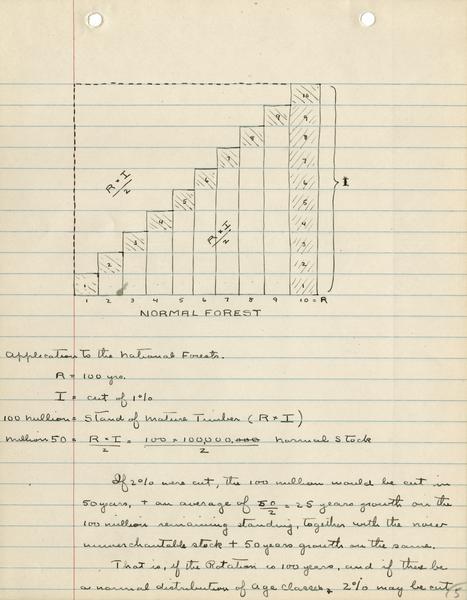 10
9 9
8 8
7 7
6 6
5 5
4 4
3 3
2 2
1 1
R × I
2
R × I
2
I
1 2 3 4 5 6 7 8 9 10 = R
NORMAL FOREST
Application to the National Forests.
R = 100 yrs.
I = cut of 1%
100 million = Stand of Mature Timber (R × I)
million 50 = R × I = 100 × 100,000,000 normal stock
2 2
If 2% were cut, the 100 million would be cut in
50 years, + an average of 50/2 = 25 years growth on the
100 million remaining standing, together with the now
unmerchantable stock + 50 years growth on the same.
That is, if the Rotation is 100 years, and if there be
a normal distribution of age classes, 2% may be cut
5